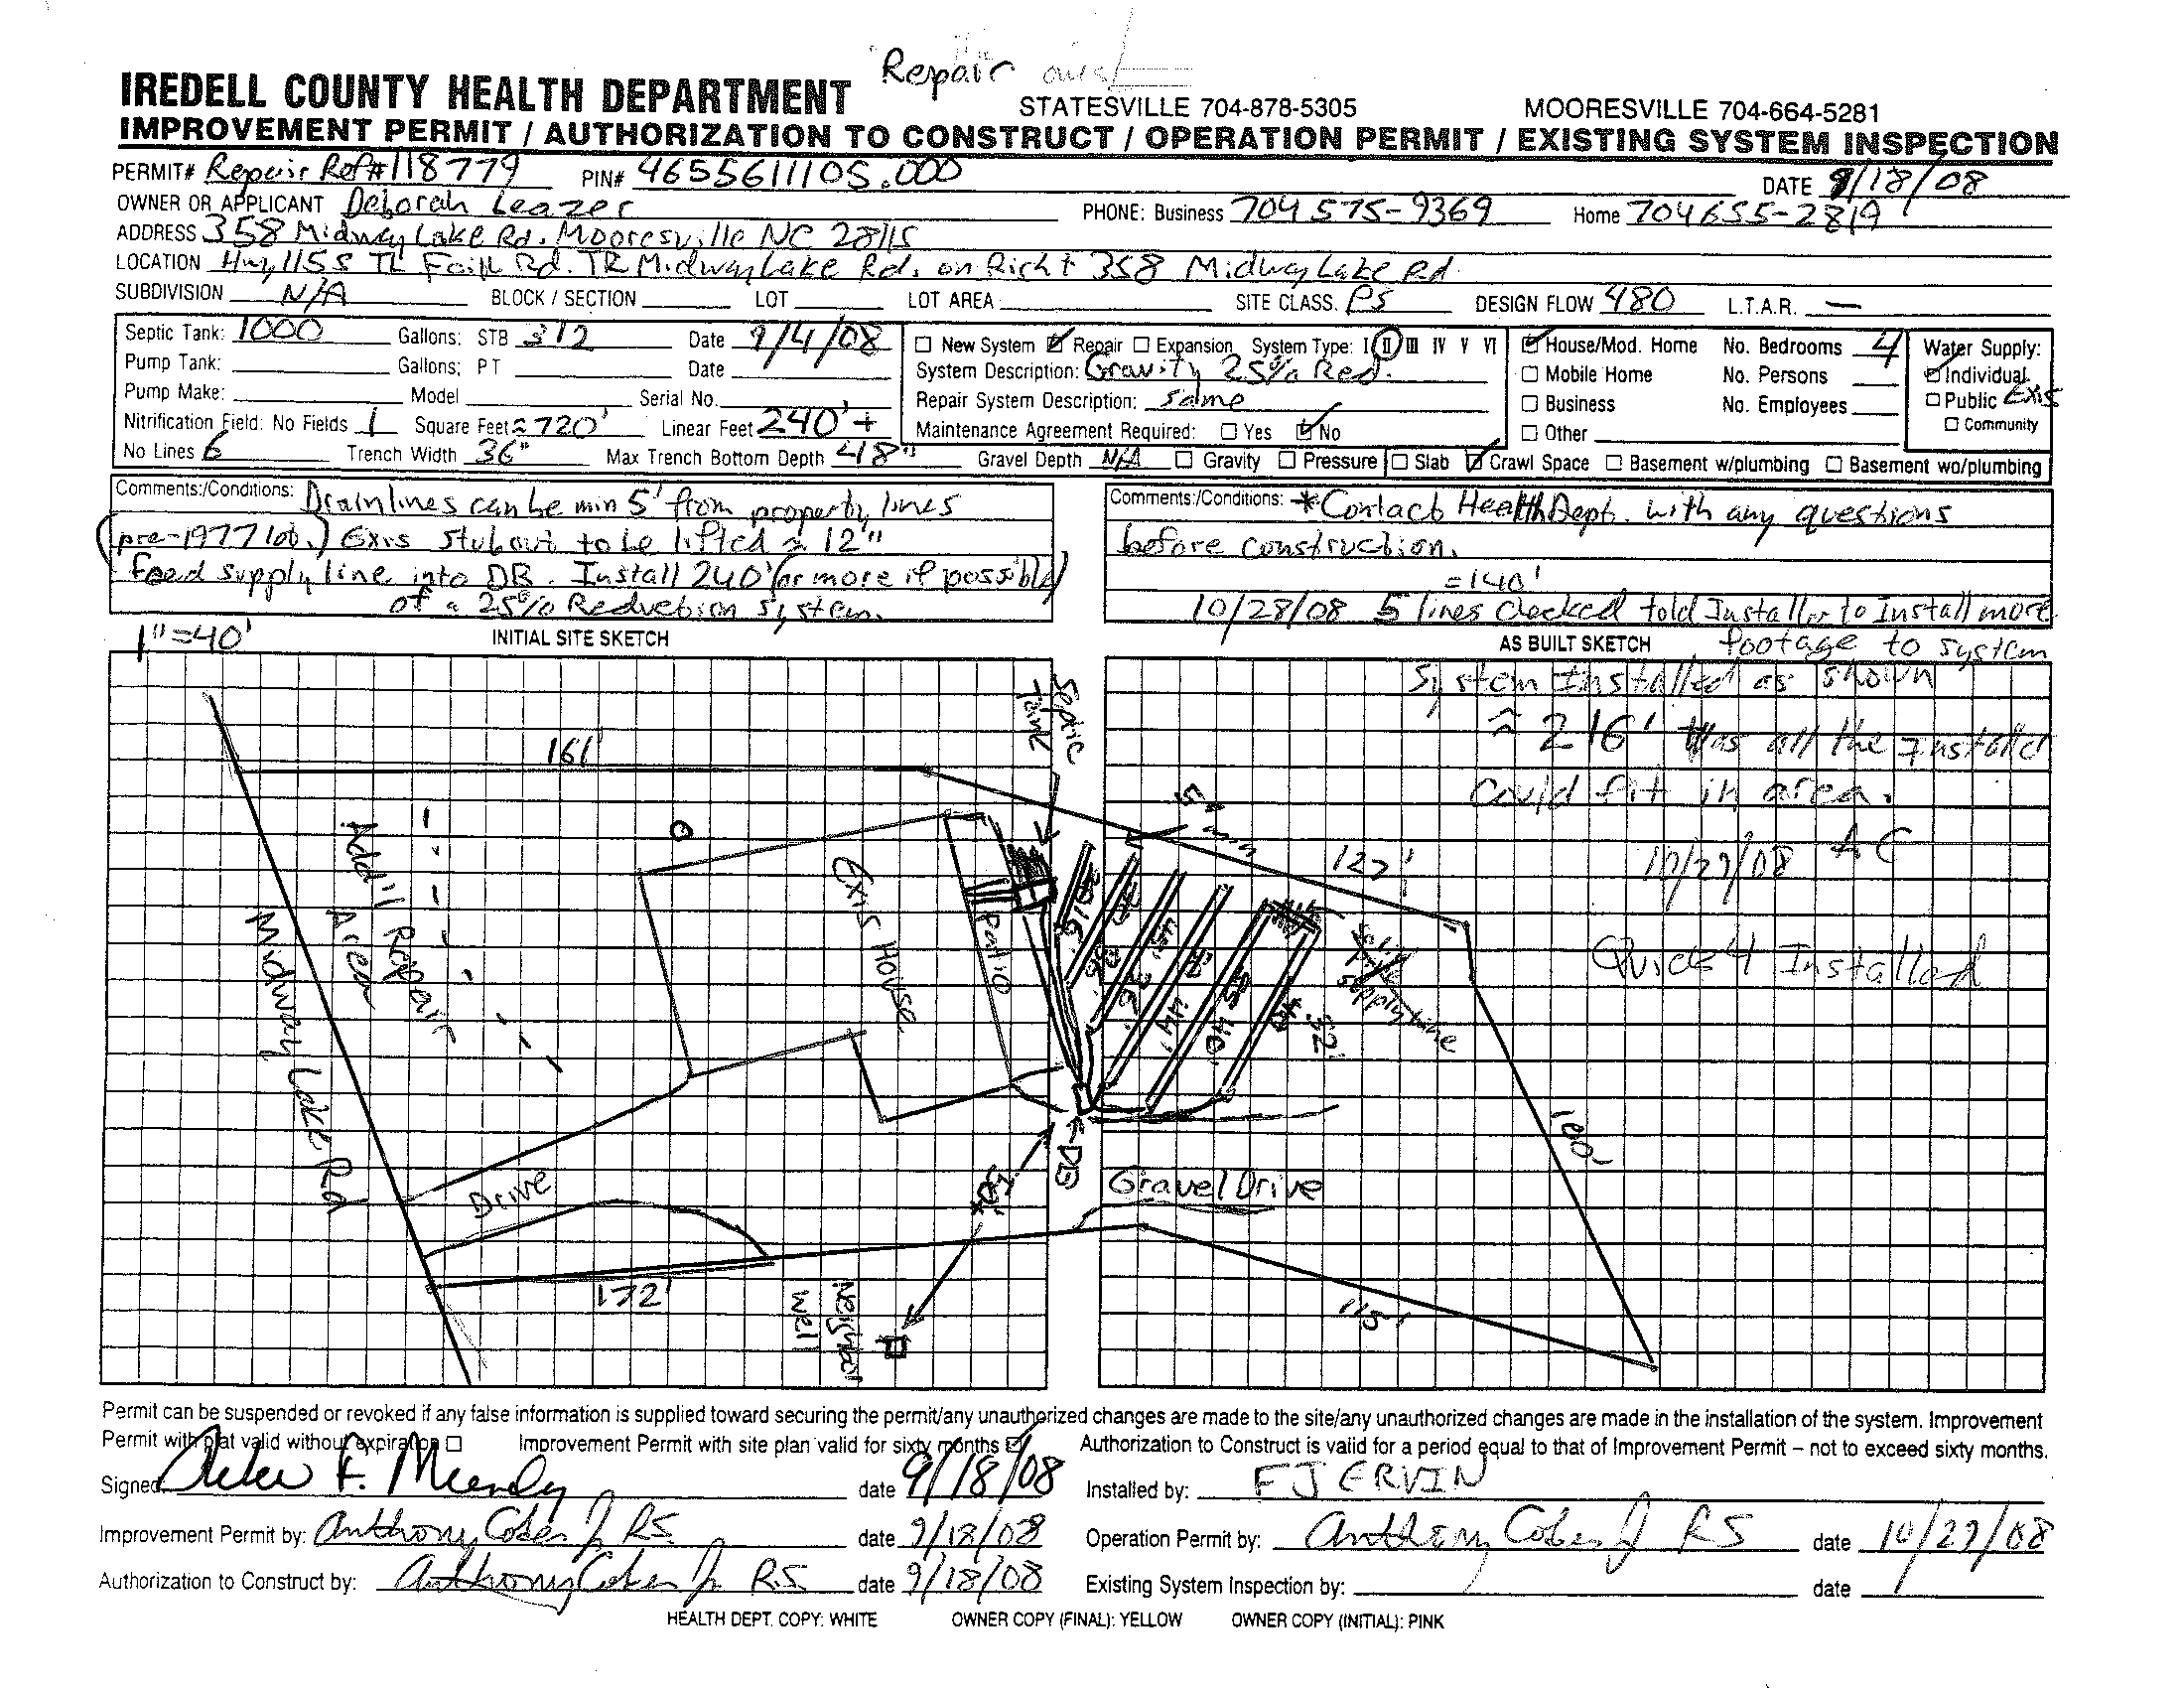 Repair
IREDELL COUNTY HEALTH DEPARTMENT STATESVILLE 704-878-5305 MOORESVILLE 704-664-5281
IMPROVEMENT PERMIT / AUTHORIZATION TO CONSTRUCT / OPERATION PERMIT / EXISTING SYSTEM INSPECTION
PERMIT# Repair Ref#118779 PIN# 4655611105.000 DATE 9/18/08
OWNER OR APPLICANT Deborah Leazer PHONE: Business 704 575-9369 Home 704 655-2819
ADDRESS 358 Midway Lake Rd. Mooresville NC 28115
LOCATION Hwy 115 S TL Faith Rd. TR Midway Lake Rd. on Right 358 Midway Lake Rd.
SUBDIVISION N/A BLOCK / SECTION LOT LOT AREA SITE CLASS. PS DESIGN FLOW 480 L.T.A.R. —
Septic Tank: 1000 Gallons: STB 312 Date 9/4/08
Pump Tank: Gallons; PT Date
Pump Make: Model Serial No.
Nitrification Field: No Fields 1 Square Feet ≈ 720' Linear Feet 240'+
No Lines 6 Trench Width 36" Max Trench Bottom Depth 48" Gravel Depth N/A Gravity Pressure
New System Repair Expansion System Type: I II III IV V VI
System Description: Gravity 25% Red.
Repair System Description: Same
Maintenance Agreement Required: Yes No
House/Mod. Home No. Bedrooms 4
Mobile Home No. Persons
Business No. Employees
Other
Water Supply:
Individual
Public Exis
Community
Slab Crawl Space Basement w/plumbing Basement wo/plumbing
Comments:/Conditions: Drainlines can be min 5' from property lines
(pre-1977 lot.) Exis stubout to be lifted ≈ 12"
Feed supply line into DB. Install 240' (or more if possible)
of a 25% Reduction system.
Comments:/Conditions: *Contact Health Dept. with any questions
before construction.
=140'
10/28/08 5 lines checked told Installer to Install more
footage to system
1"=40' INITIAL SITE SKETCH
AS BUILT SKETCH
System Installed as shown
≈ 216' Was all the Installer
could fit in area.
10/29/08 AC
Quick4 Installed
Septic
Tank
161'
127'
5'
Add'l Repair
Area
Midway Lake Rd
Exis House
Patio
16'
36'
44'
40'
52'
supply line
100'
DB
Gravel Drive
Drive
172'
Neighbor
Well
115'
Permit can be suspended or revoked if any false information is supplied toward securing the permit/any unauthorized changes are made to the site/any unauthorized changes are made in the installation of the system. Improvement
Permit with plat valid without expiration Improvement Permit with site plan valid for sixty months Authorization to Construct is valid for a period equal to that of Improvement Permit – not to exceed sixty months.
Signed date 9/18/08 Installed by: F J ERVIN
Improvement Permit by: Anthony Coker Jr RS date 9/18/08 Operation Permit by: Anthony Coker Jr RS date 10/29/08
Authorization to Construct by: Anthony Coker Jr R.S. date 9/18/08 Existing System Inspection by: date
HEALTH DEPT. COPY: WHITE OWNER COPY (FINAL): YELLOW OWNER COPY (INITIAL): PINK